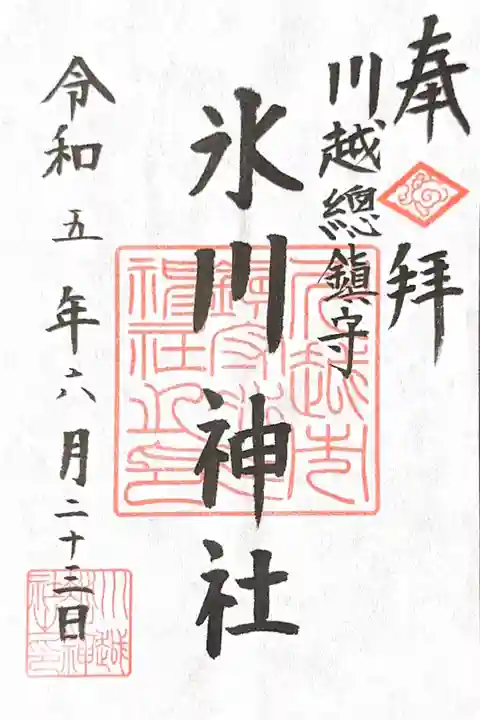 奉拜
川越總鎮守
氷川神社
令和五年六月二十三日